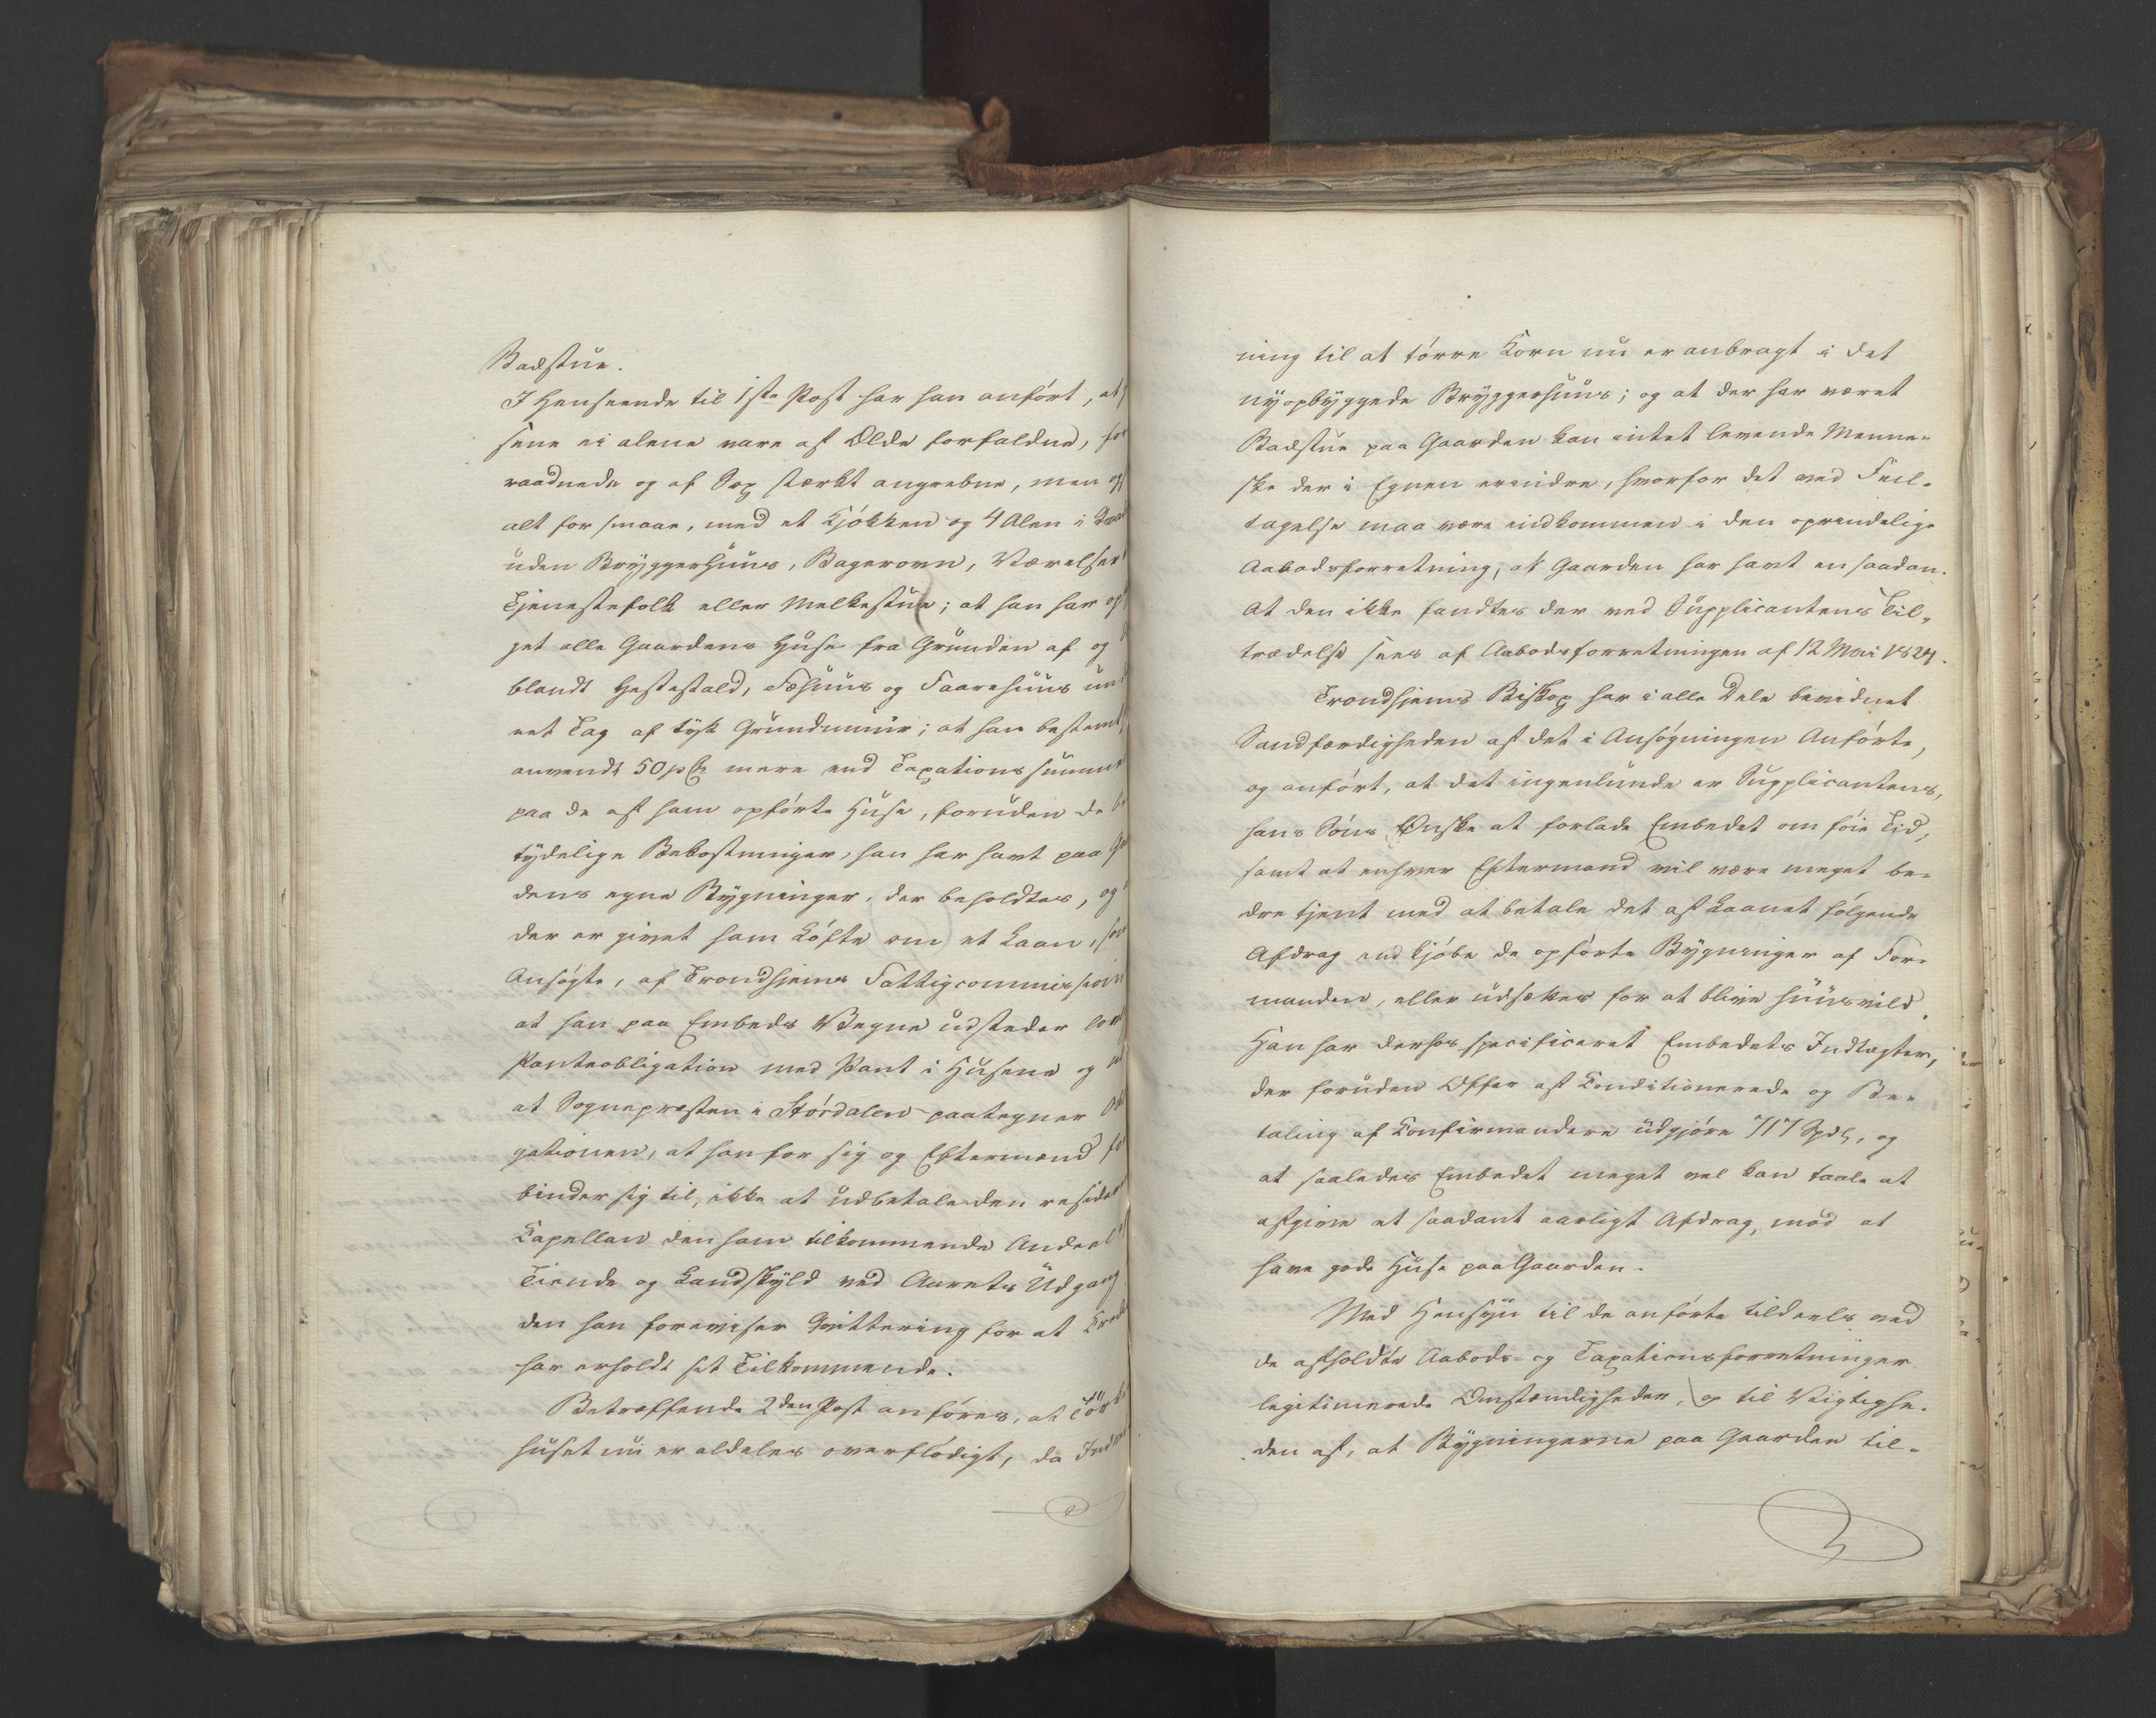 Badstue.
I Henseende til 1ste Post har han anført, at
sene ei alene vare af Ælde forfaldne, for
raadnede og af Sop stærkt angrebne, men og
alt for smaae, med et Kjøkken og 4 Alen i
uden Bryggerhuus, Bagerovn, Værelser
Tjenestefolk eller Melkestue; at han har op
get alle Gaardens Huse fra Grunden af og
blandt Hestestald, Fæhuus og Faarehuus un
eet Tag af tyk Grundmuur; at han bestemt
anvendt 50 pCt mere end Taxationssumme
paa de af ham opførte Huse, foruden de be
tydelige Bekostninger, han har havt paa Ga
dens egne Bygninger, der beholdtes, og
der er givet ham Løfte om et Laan, som
Ansøgte, af Trondhjems Fattigcommission
at han paa Embeds Vegne udsteder
Panteobligation med Pant i Husene og
at Sognepræsten i Størdalen paategner Obli
gationen, at han for sig og Eftermænd for
binder sig til, ikke at udbetale den resider
Capellan den ham tilkommende Andeel
Tiende og Landskyld ved Aarets Udgang
den han foreviser Qvittering for at Kredi
har erholdt sit Tilkommende.
Betræffende 2den Post anføres, at Tørke
huset nu er aldeles overflødigt, da Indret
ning til at tørre Korn nu er anbragt i det
nyopbyggede Bryggerhuus; og at der har været
Badstue paa Gaarden kan intet levende Menne-
ske der i Egnen erindre, hvorfor det ved Feil-
tagelse maa være indkommen i den oprindelige
Aabodsforretning, at Gaarden har havt en saadan.
At den ikke fandtes der ved Supplicantens Til-
trædelse sees af Aabodsforretningen af 12 Mai 1824.
Trondhjems Biskop har i alle Dele bevidnet
Sandfærdigheden af det i Ansøgningen Anførte,
og anført, at det ingenlunde er Supplicantens,
hans Søns Ønske at forlade Embedet om føie Tid,
samt at enhver Eftermand vil være meget be-
dre tjent med at betale det af Laanet følgende
Afdrag end kjøbe de opførte Bygninger af For-
manden, eller udsættes for at blive huusvild.
Han har derhos specificeret Embedets Indtægter,
der foruden Offer af Conditionerede og Be-
taling af Confirmandere udgjøre 717 Spd, og
at saaledes Embedet meget vel kan taale at
afgive et saadant aarligt Afdrag, mod at
have gode Huse paa Gaarden.
Med Hensyn til de anførte tildeels ved
de afholdte Aabods- og Taxationsforretninger
legitimerede Omstændigheder, og til Vigtighe-
den af, at Bygningerne paa Gaarden til-